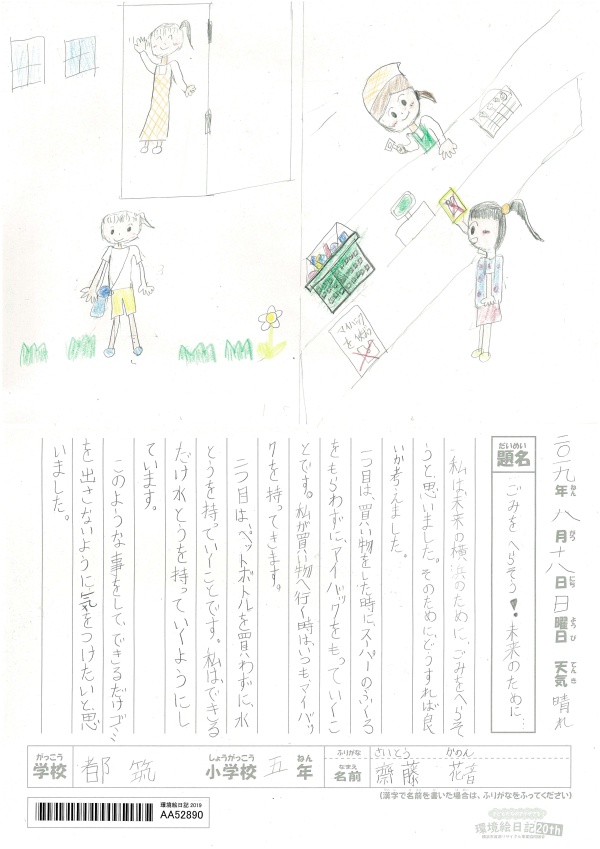 マイバック
を
二〇一九年八月十八日日曜日 天気 晴れ
ねん がつ にち ようび てんき
だいめい
題名
ごみをへらそう!未来のために…
私は未来の横浜のために、ごみをへらそ
うと思いました。そのためにどうすれば良
いか考えました。
一つ目は、買い物をした時に、スーパーのふくろ
をもらわずに、マイバックをもっていくこ
とです。私が買い物へ行く時は、いつも、マイバッ
クを持ってきます。
二つ目は、ペットボトルを買わずに、水
とうを持っていくことです。私はできる
だけ水とうを持っていくようにし
ています。
このような事をして、できるだけゴミ
を出さないように気をつけたいと思
いました。
がっこう しょうがっこう ねん ふりがな さいとう かのん
学校 都筑 小学校 五年 なまえ 名前 齋藤 花音
(漢字で名前を書いた場合は、ふりがなをふってください)
環境絵日記 2019
AA52890
環境絵日記20th